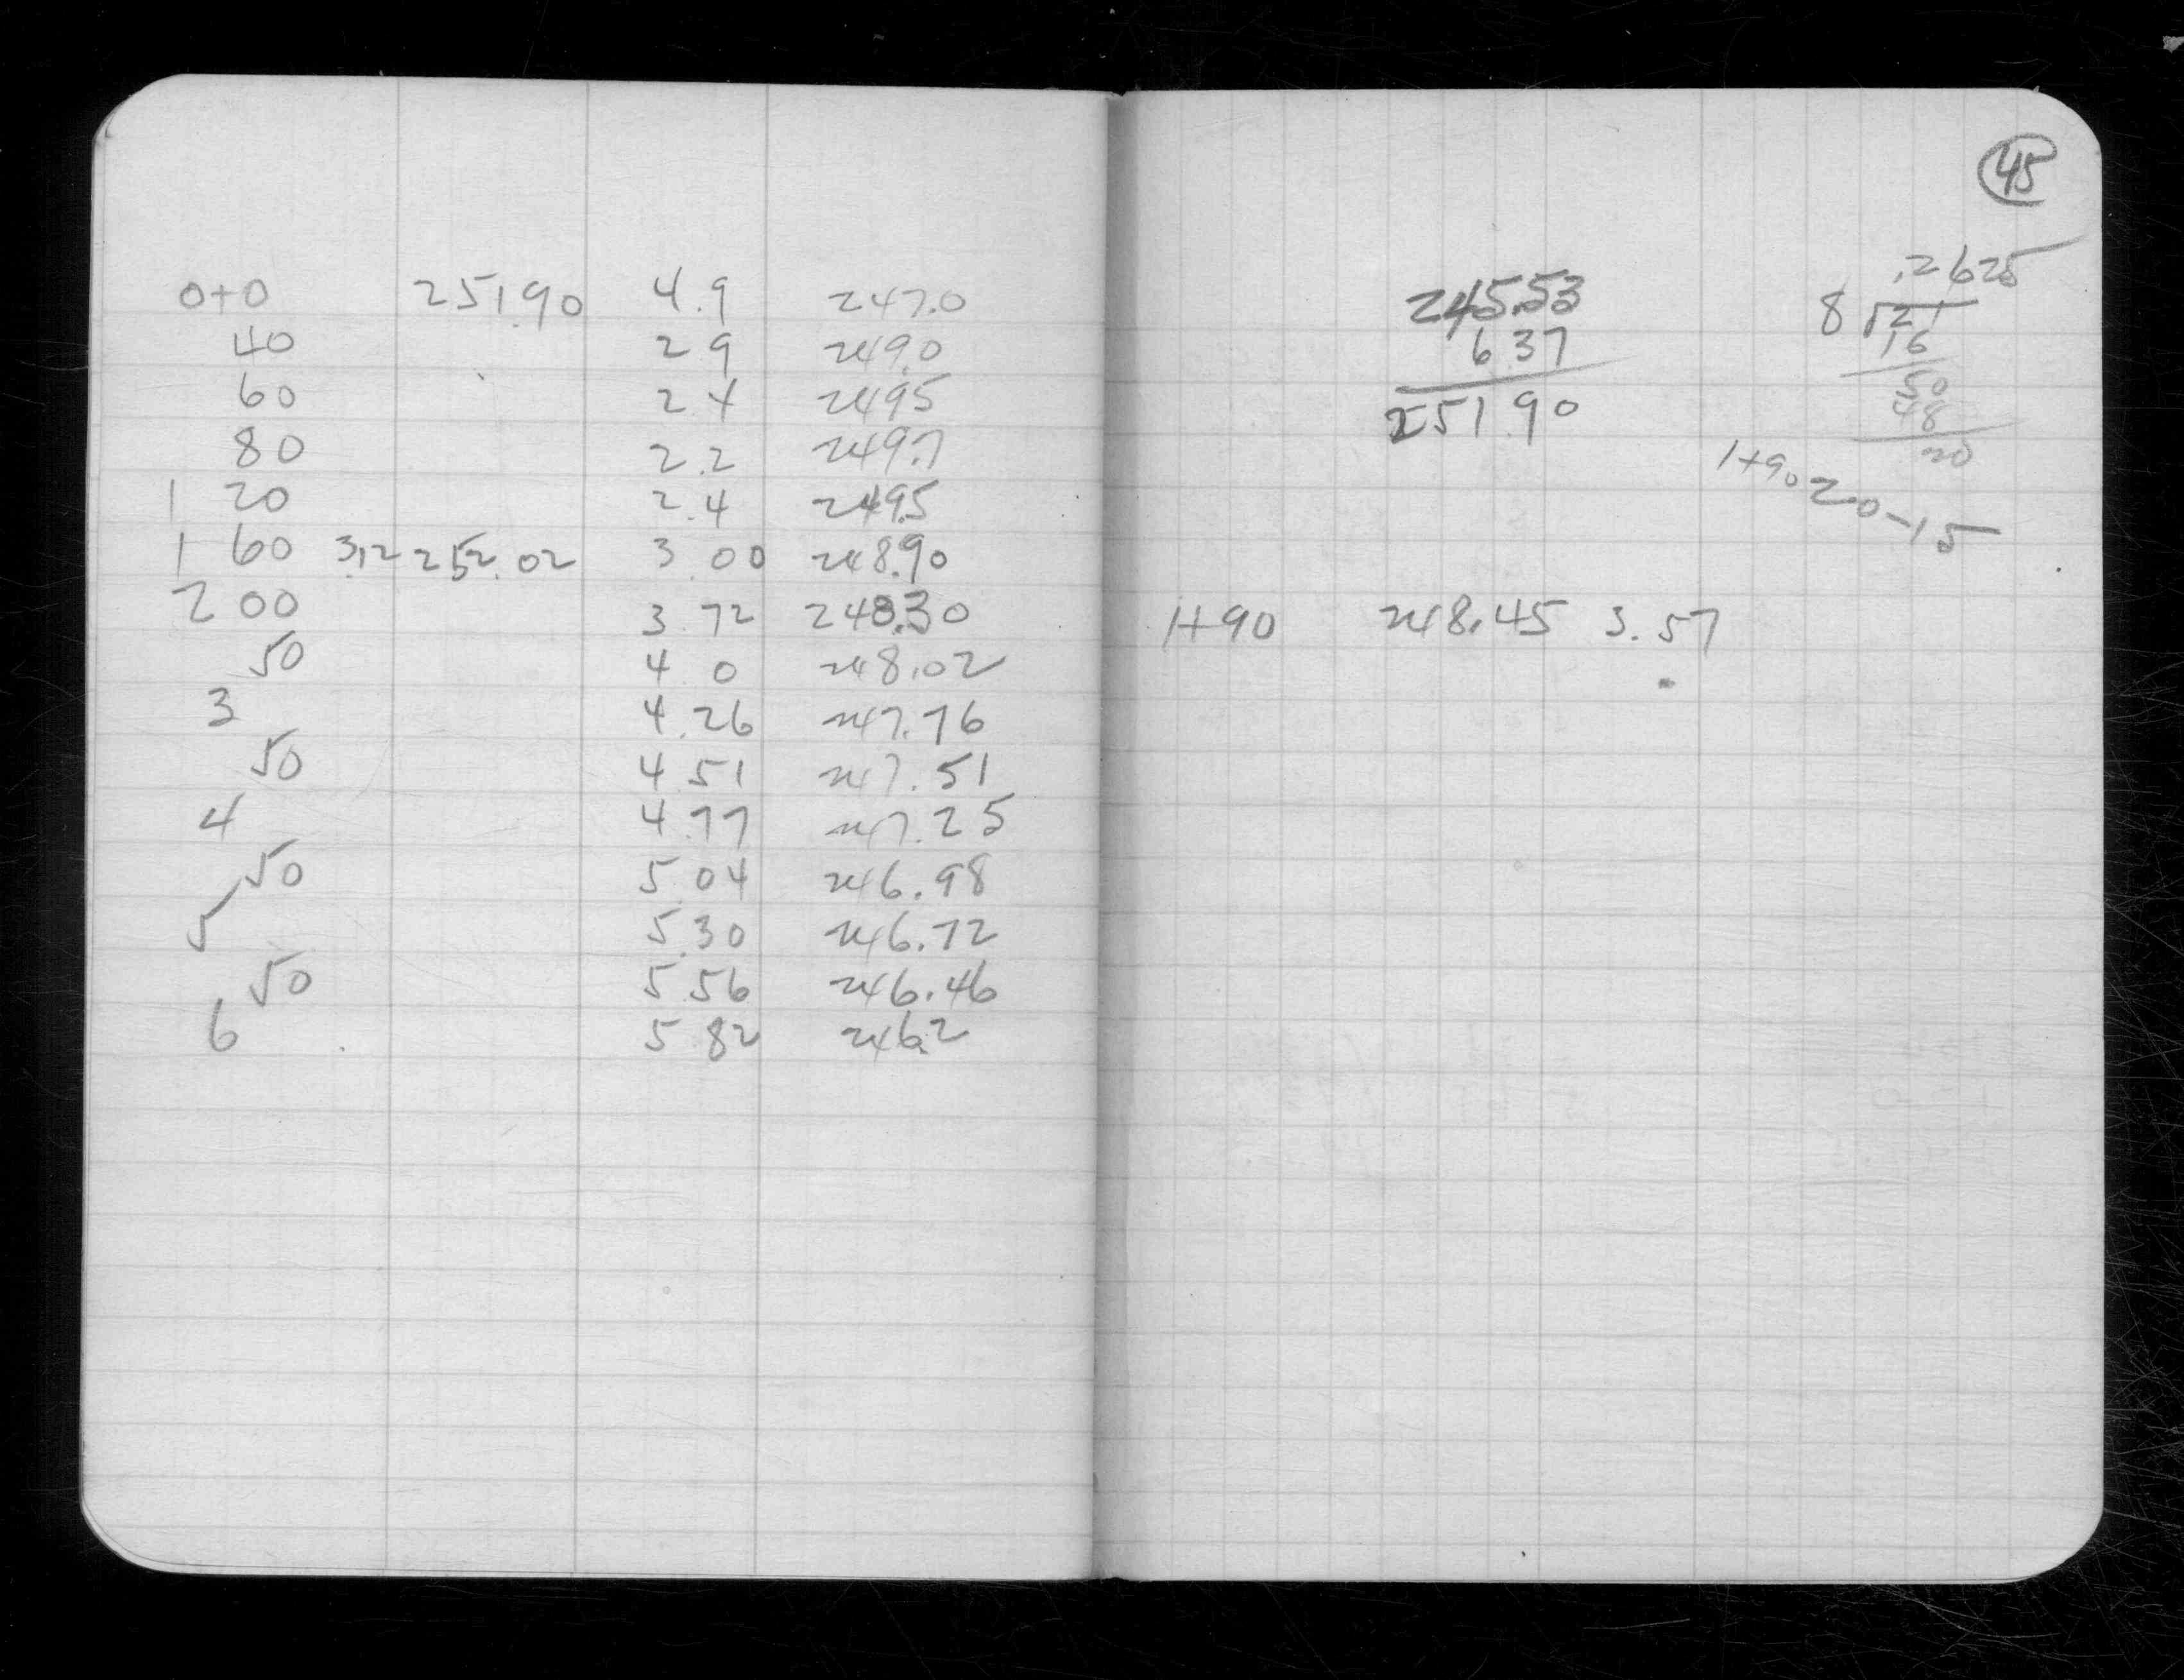 0+0 251.90 4.9 247.0
40 2.9 249.0
60 2.4 249.5
80 2.2 249.7
1 20 2.4 249.5
1 60 3.12 252.02 3.00 248.90
2 00 3.72 248.30
50 4.0 248.02
3 4.26 247.76
50 4.51 247.51
4 4.77 247.25
50 5.04 246.98
5 5.30 246.72
50 5.56 246.46
6 5.82 246.2
45
245.53
6.37
251.90
.2625
8 √2.1
16
50
48
20
1+90 2.0-15
1+90 248.45 3.57